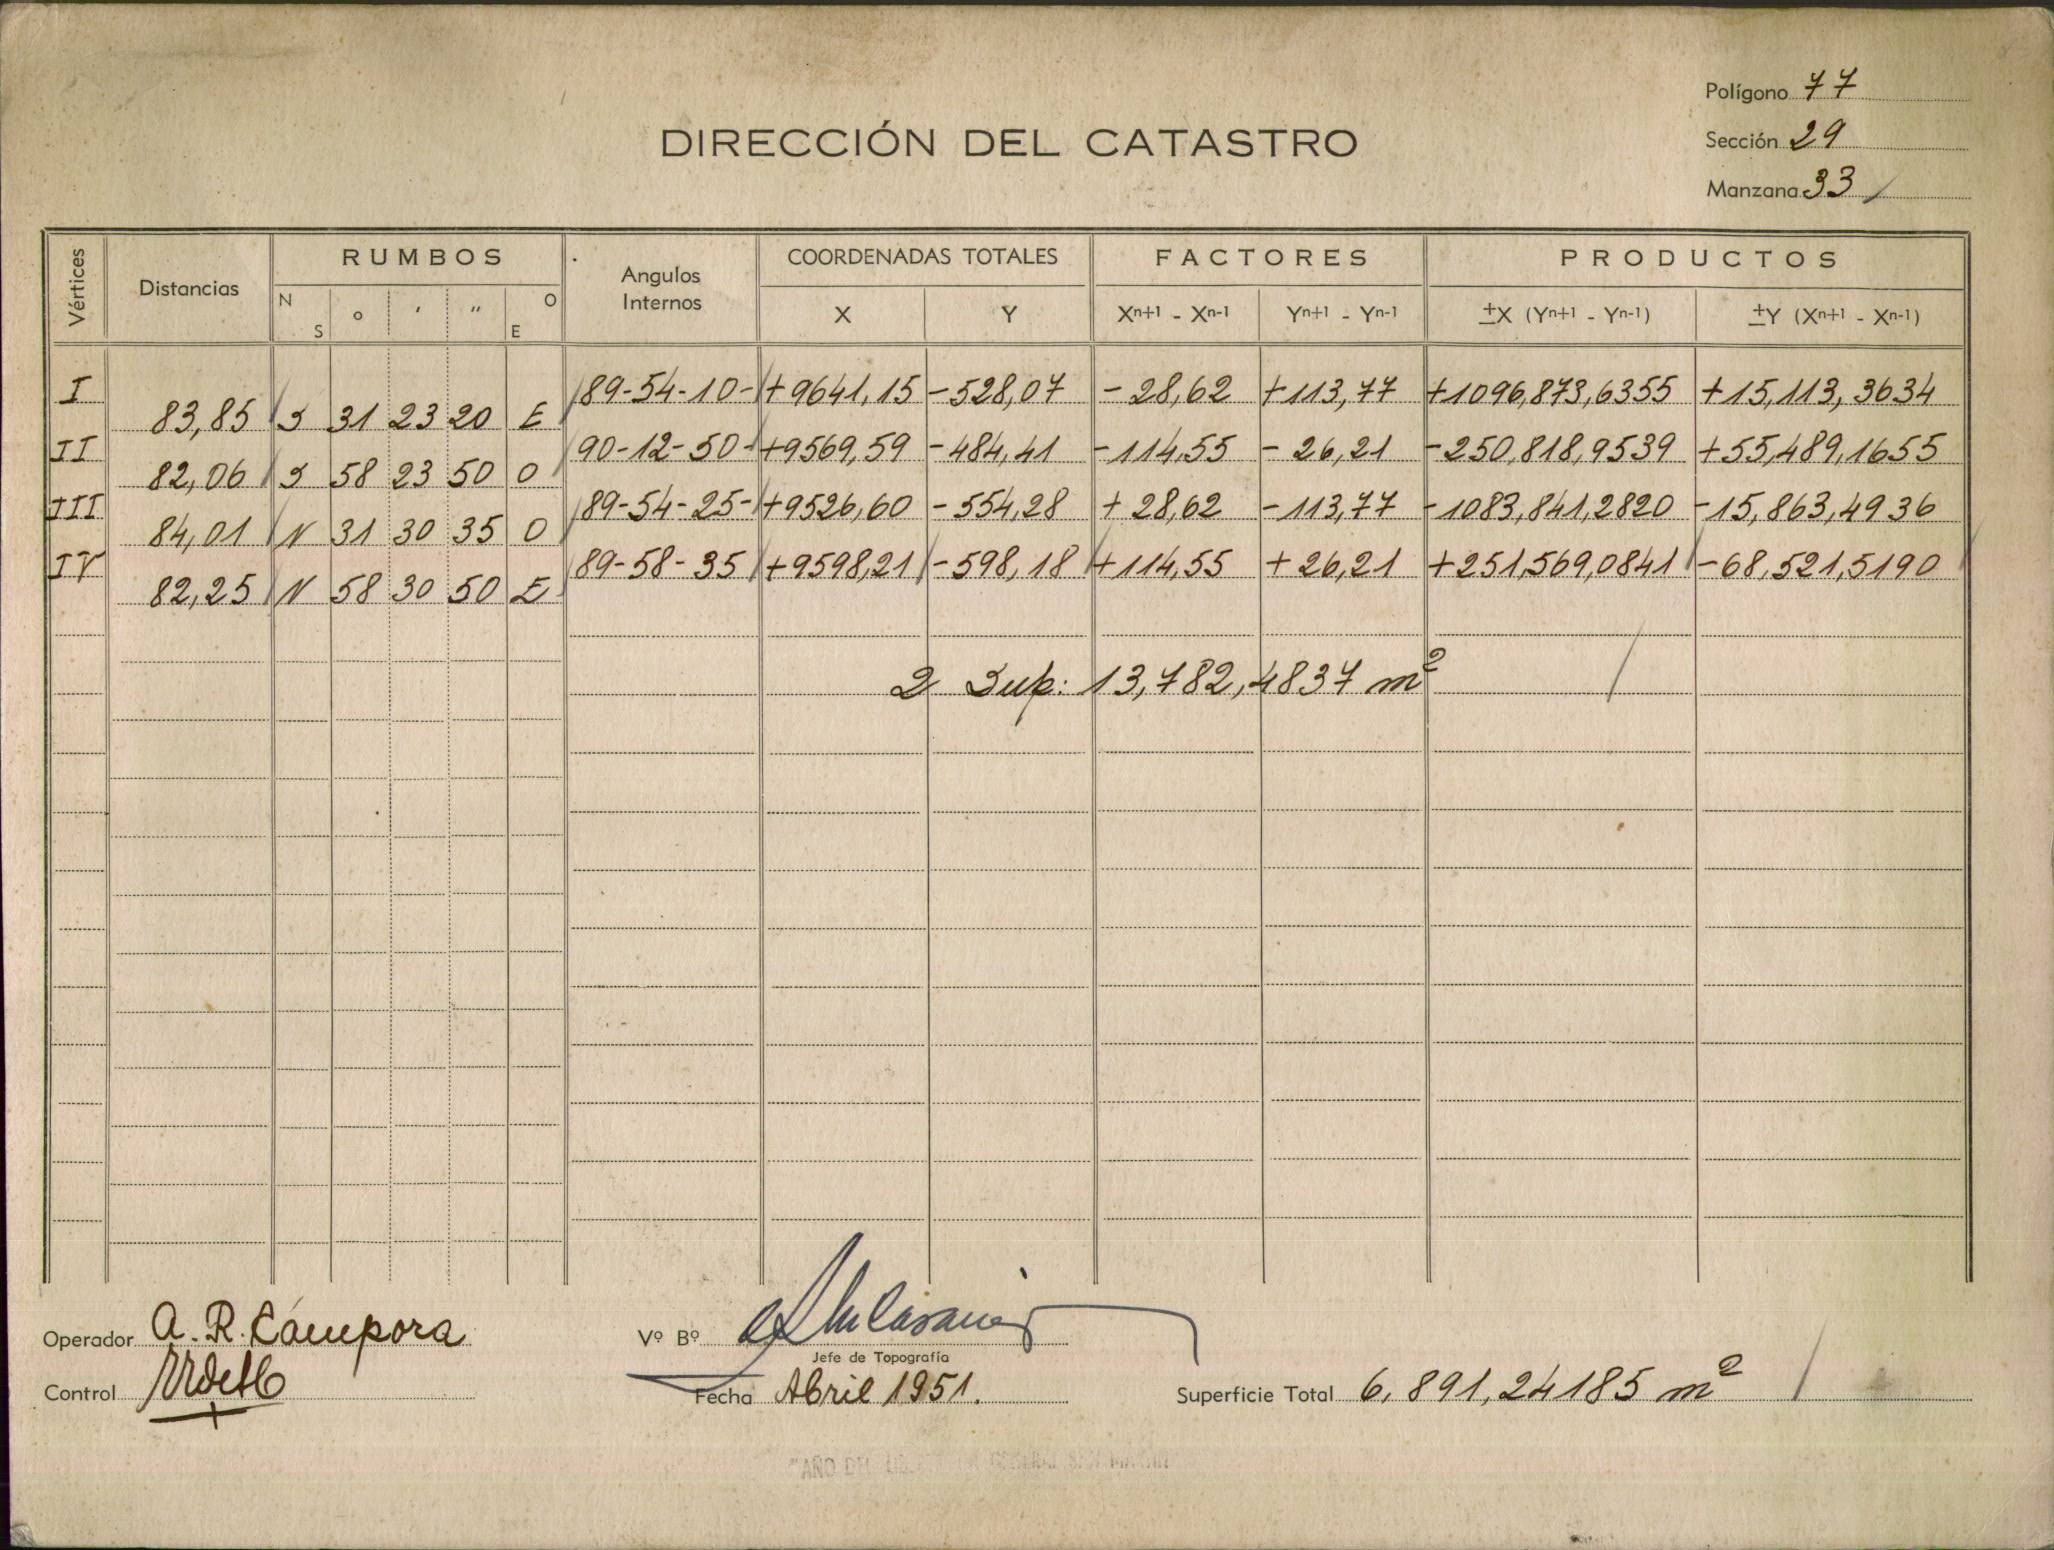 Polígono 77
DIRECCIÓN DEL CATASTRO
Sección 29
Manzana 33
Vértices Distancias RUMBOS Angulos Internos COORDENADAS TOTALES FACTORES PRODUCTOS
N S ° ' " O E X Y Xn+1 - Xn-1 Yn+1 - Yn-1 ±X (Yn+1 - Yn-1) ±Y (Xn+1 - Xn-1)
I 89-54-10- +9641,15 -528,07 -28,62 +113,77 +1096,873,6355 +15,113,3634
83,85 S 31 23 20 E
II 90-12-50- +9569,59 -484,41 -114,55 -26,21 -250,818,9539 +55,489,1655
82,06 S 58 23 50 O
III 89-54-25- +9526,60 -554,28 +28,62 -113,77 -1083,841,2820 -15,863,4936
84,01 N 31 30 35 O
IV 89-58-35 +9598,21 -598,18 +114,55 +26,21 +251,569,0841 -68,521,5190
82,25 N 58 30 50 E
2 Sup: 13,782,4837 m²
Operador A. R. Cámpora
Vº Bº
Jefe de Topografía
Control
Fecha Abril 1951.
Superficie Total 6,891,24185 m²
"AÑO DEL